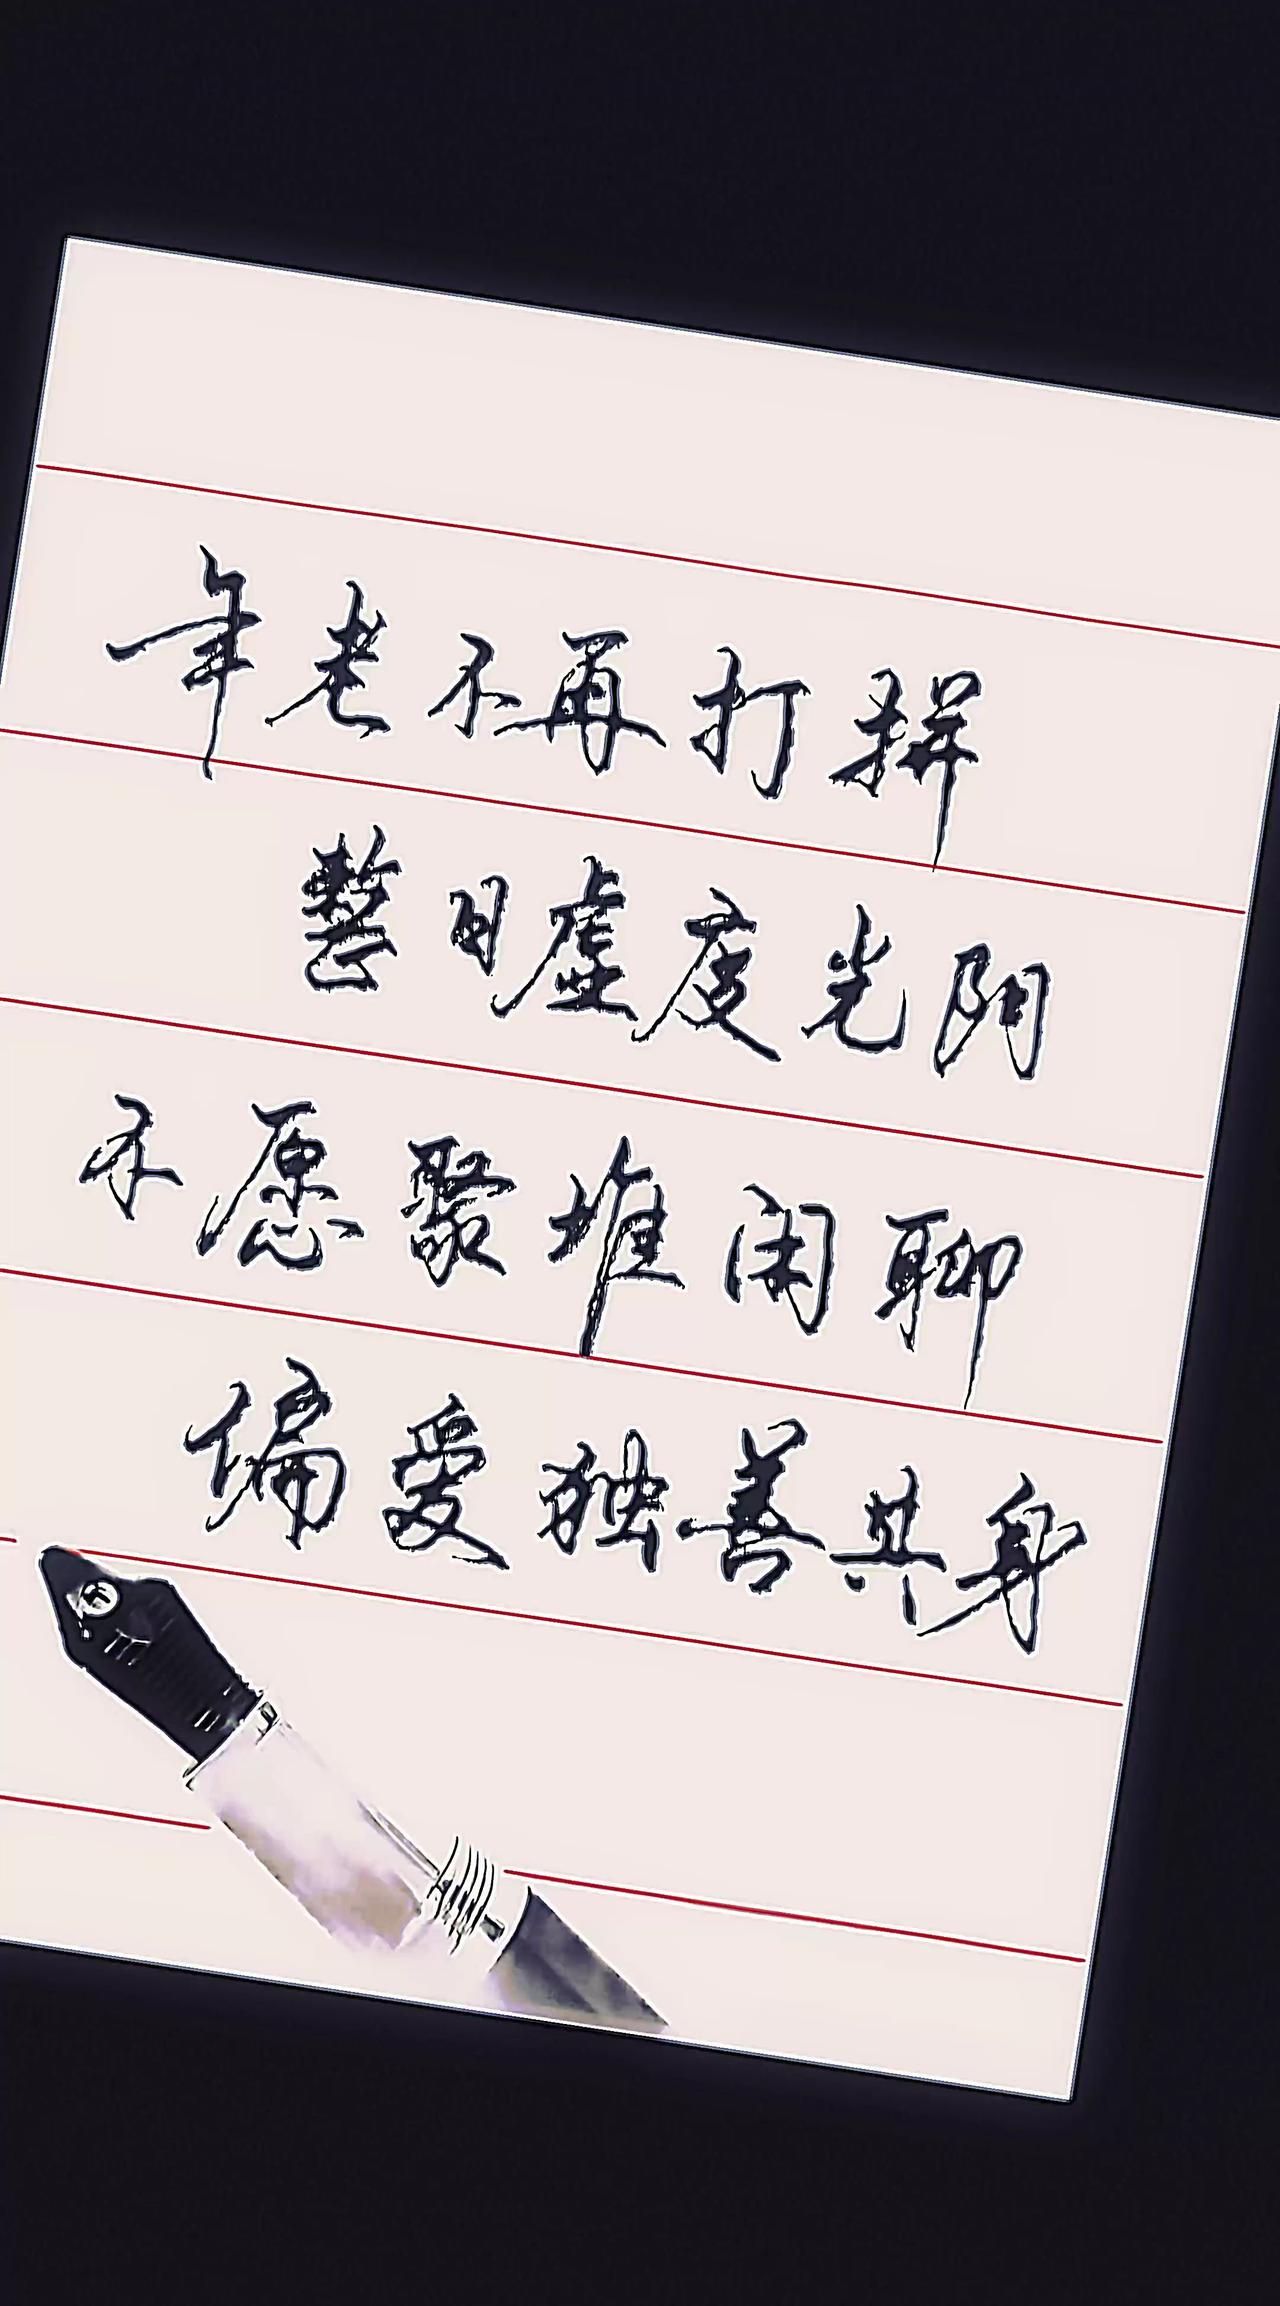 年老不再打拼
整日虚度光阴
不愿聚堆闲聊
偏爱独善其身